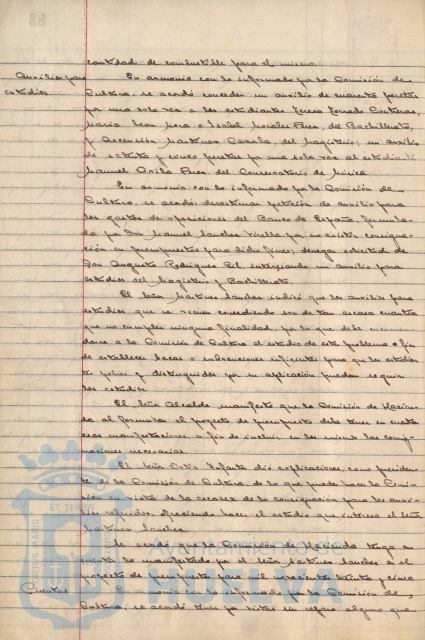 cantidad de combustible para el mismo.
Auxilios para
estudios.
En armonía con lo informado por la Comisión de
Cultura, se acordó conceder un auxilio de cuarenta pesetas
por una sola vez a los estudiantes Teresa Contreras,
María León Mora e Isabel Morales Pérez, de Bachillerato,
y Ascensión Martínez Cazorla, del Magisterio; un auxilio
de setenta y cinco pesetas por una sola vez al estudiante
Manuel Avila Pérez, del Conservatorio de Música.
En armonía con lo informado por la Comisión de
Cultura, se acordó desestimar petición de auxilio para
los gastos de oposiciones del Banco de España, formula-
da por Don Manuel Sánchez por no existir consigna-
ción en presupuestos para dichos fines; denegar solicitud de
Don Augusto Rodríguez Gil, interesando un auxilio para
estudios del Magisterio y Bachillerato.
El señor Martínez Sánchez indicó que los auxilios para
estudios que se vienen concediendo son de tan escasa cuantía
que no cumplen ninguna finalidad, por lo que debe encomen-
darse a la Comisión de Cultura el estudio de este problema a fin
de establecer becas o subvenciones suficientes para que los estudian-
tes pobres y distinguidos por su aplicación puedan seguir
los estudios.
El señor Alcalde manifestó que la Comisión de Hacien-
da al formular el proyecto de presupuesto debe tener en cuenta
esas manifestaciones, a fin de incluir en los mismos las consig-
naciones necesarias.
El señor Ortiz Infante dió explicaciones, como presiden-
te de la Comisión de Cultura, de lo que puede hacer la Comi-
sión en vista de la escasez de la consignación para los auxi-
lios referidos, ofreciendo hacer el estudio que interesa el señor
Martínez Sánchez.
Se acordó que la Comisión de Hacienda tenga en
cuenta lo manifestado por el señor Martínez Sánchez en el
proyecto de presupuesto para mil novecientos treinta y cinco.
Cuentas
En armonía con lo informado por la Comisión de
Cultura, se acordó tener por vistas sin reparo alguno que
Ayuntamiento de